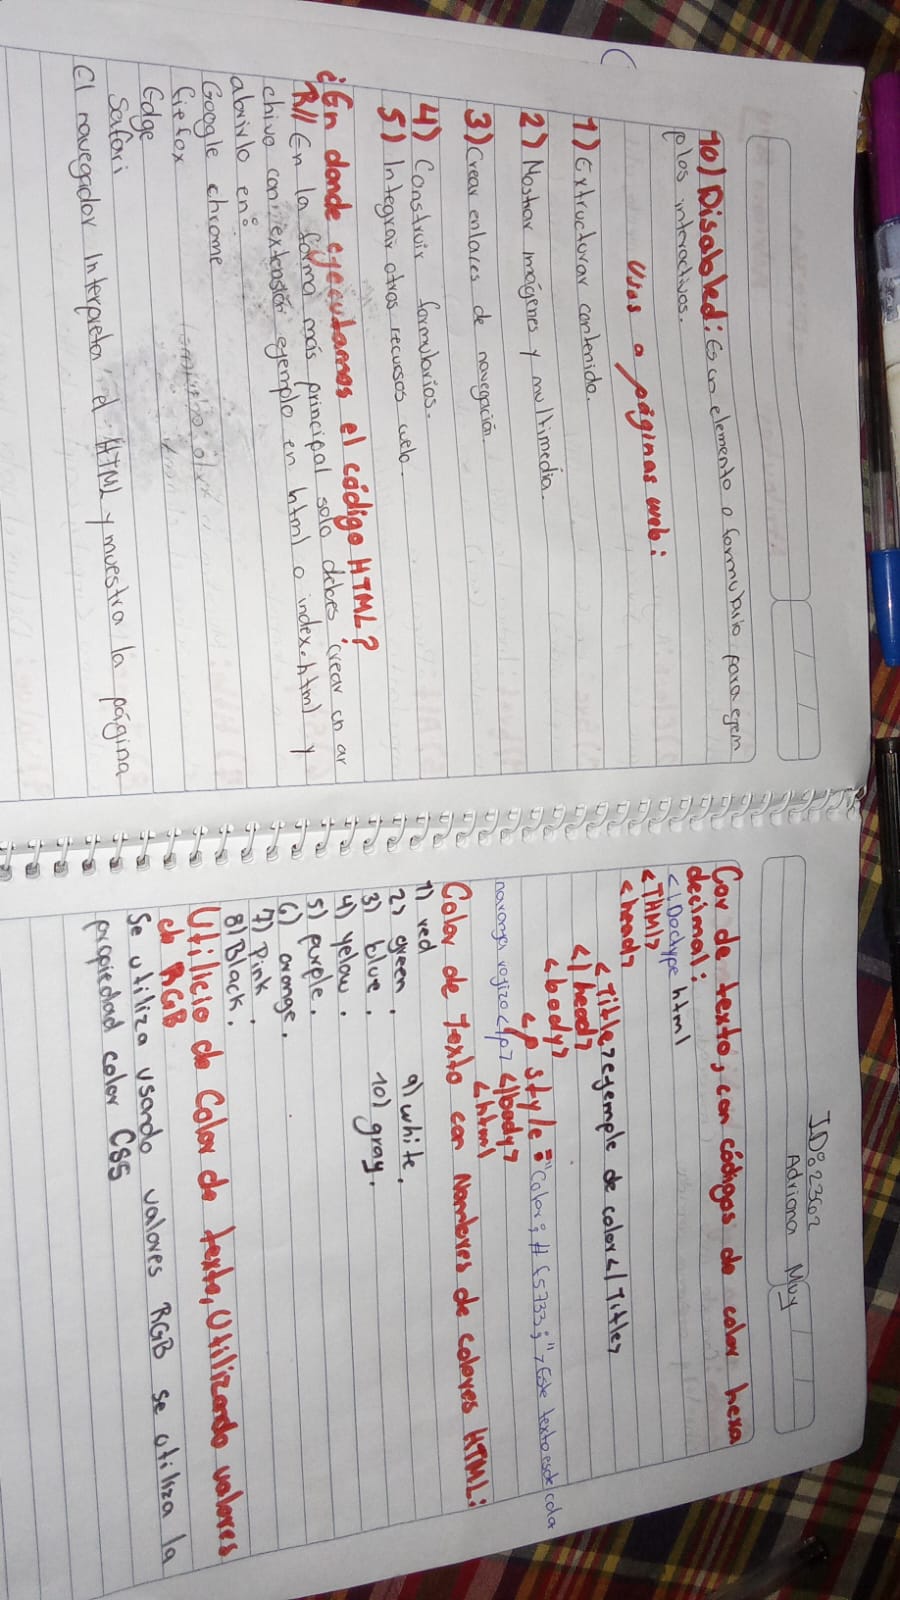 10) Disabled: Es un elemento o formulario para ejem
plos interactivos.
Usos a páginas web:
1) Extructurar contenido.
2) Mostrar imágenes y multimedia.
3) Crear enlaces de navegación.
4) Construir formularios.
5) Integrar otros recursos web.
¿En donde ejecutamos el código HTML?
R// En la forma más principal solo debes crear un ar
chivo con extensión ejemplo en html o index.html y
abrirlo en:
Google chrome
Firefox
Edge
Safari
El navegador Interpreta el HTML y muestra la página
ID: 23602
Adriana Muy
Cor de texto, con códigos de color hexa
decimal:
<!Doctype html
<THMl>
<head>
<Title>ejemple de color</Title>
</head>
<body>
<p style="Color; #f5733;">Este texto es de cola
naranja rojizo</p> </body>
<html
Color de Texto con Nombres de colores HTML:
1) red
2) green.
3) blue.
4) yelow.
5) purple.
6) orange.
7) Pink.
8) Black.
9) white.
10) gray.
Utilicio de Color de texto, Utilizando valores
de RGB
Se utiliza usando valores RGB se utiliza la
propiedad color CSS